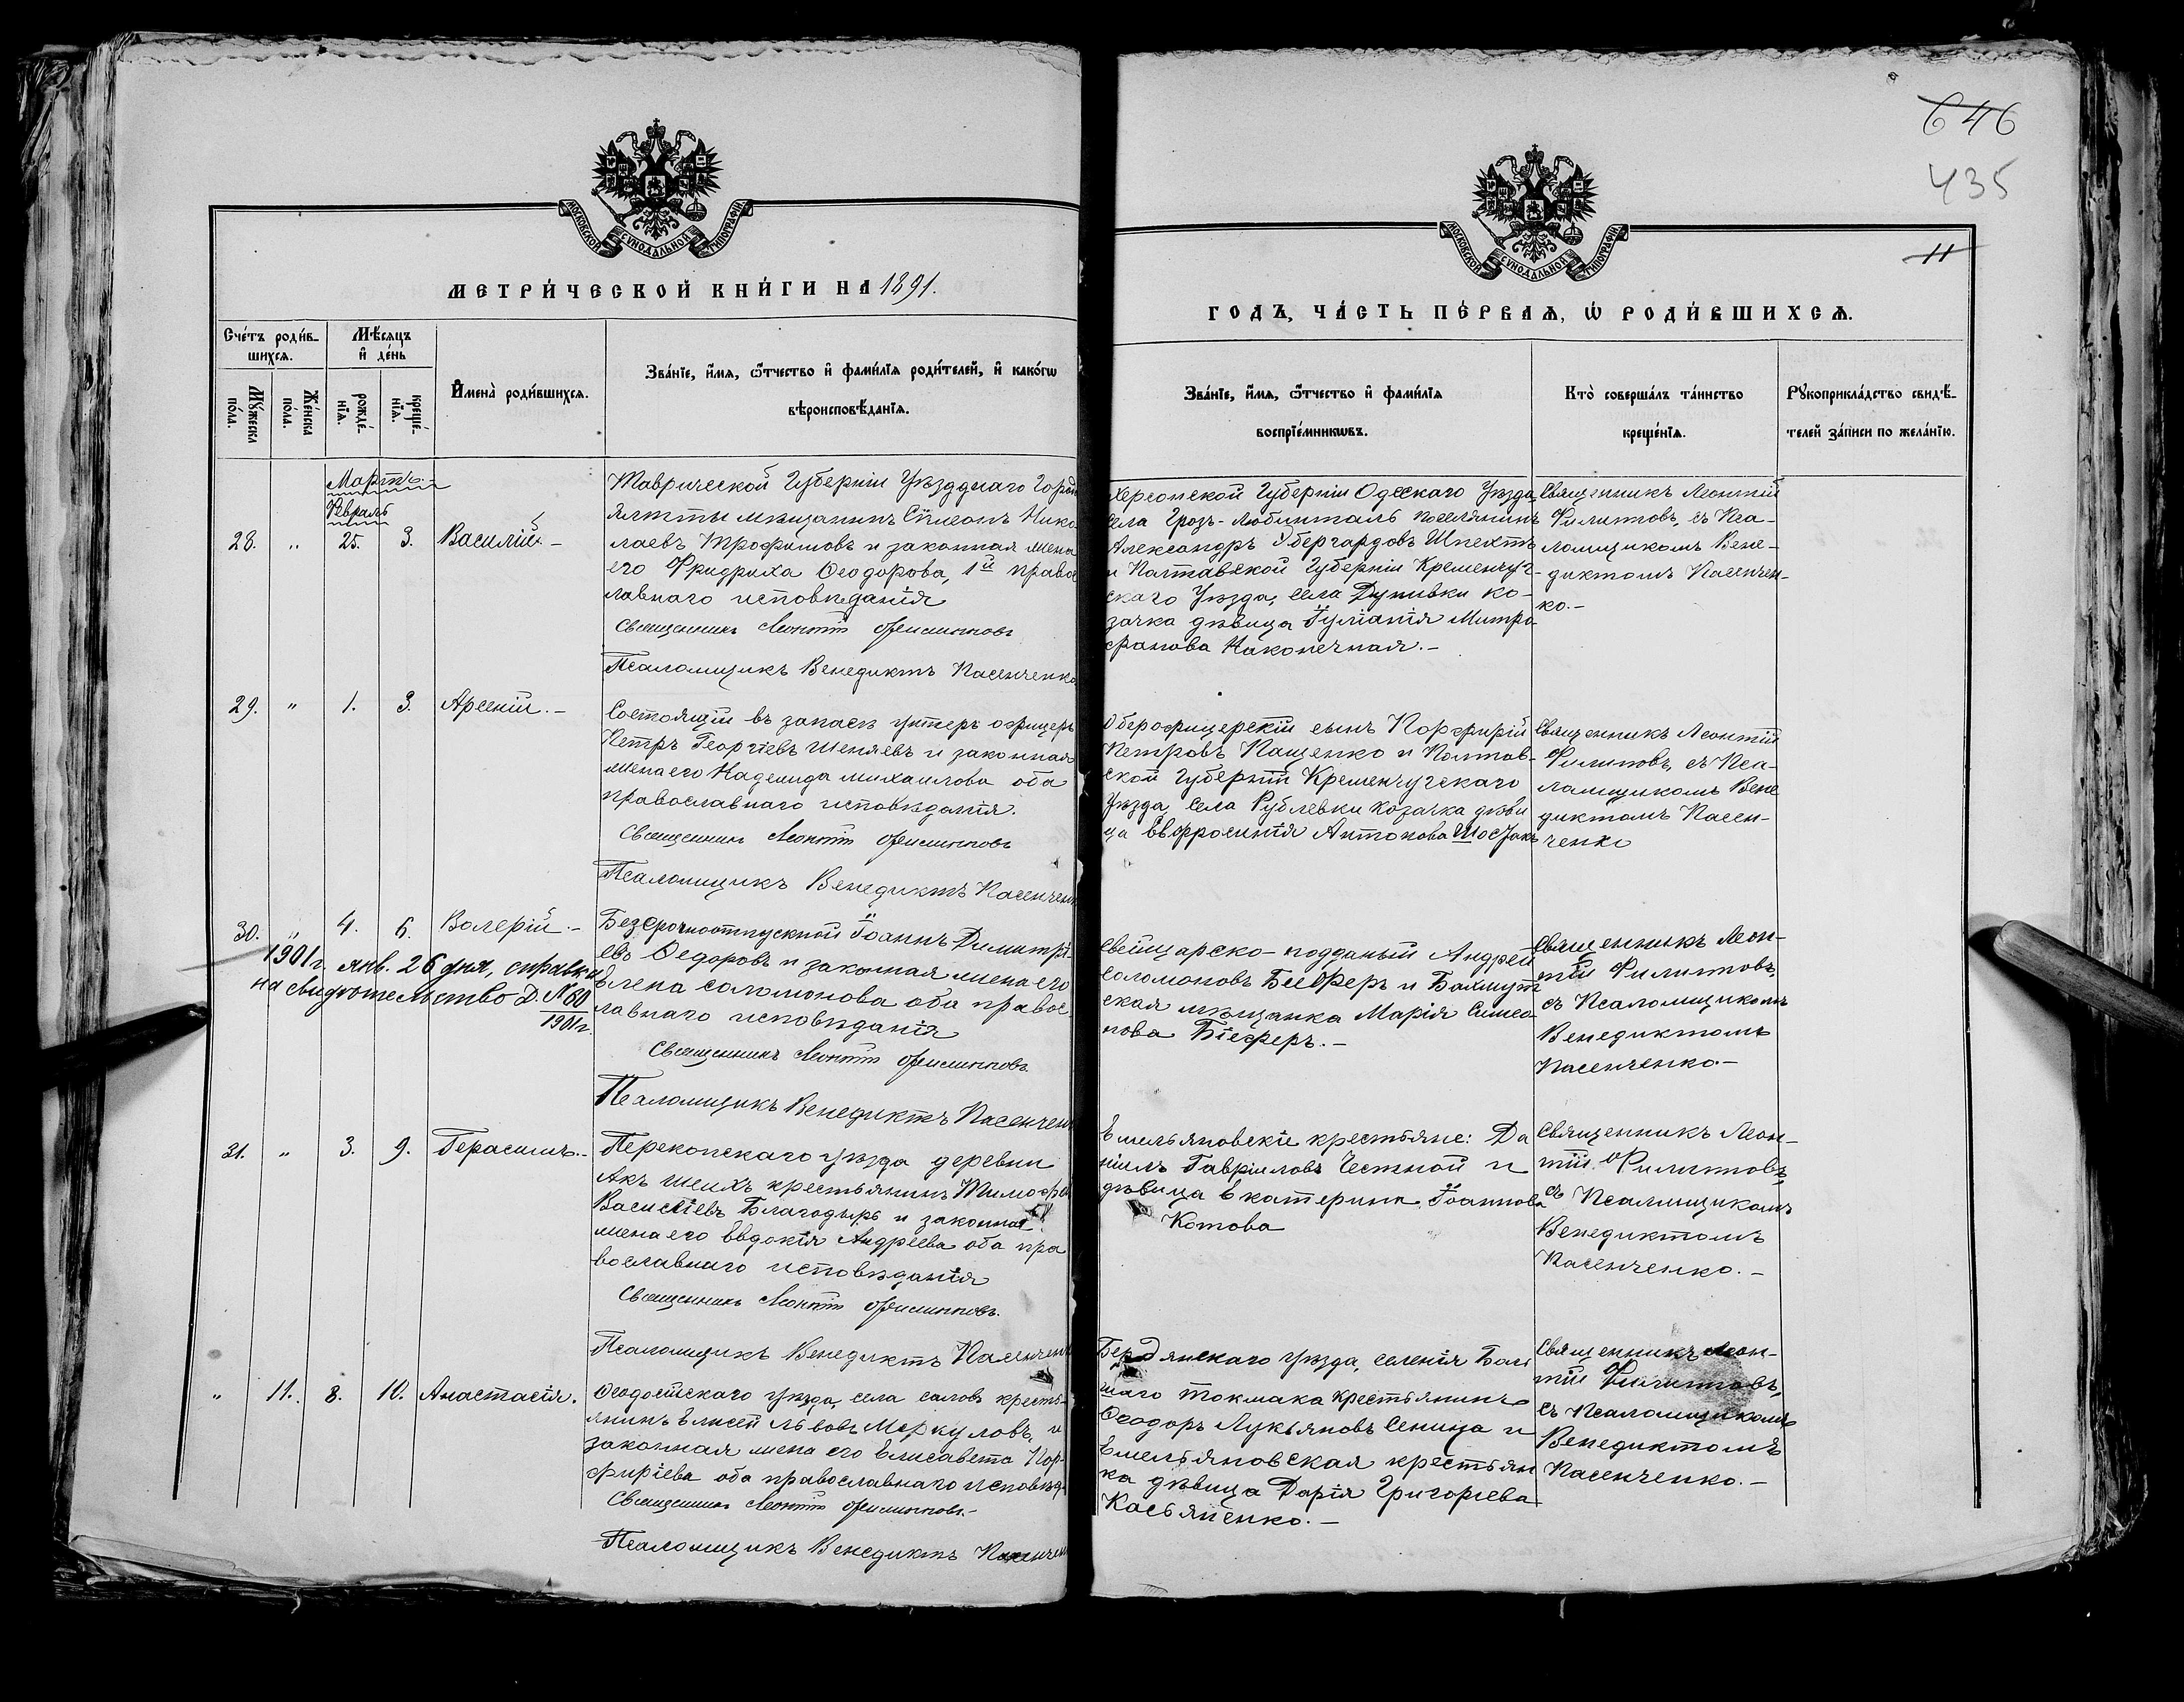 646
435
11
МОСКОВСКОЙ СУНОДАЛЬНОЙ ТИПОГРАФІИ
МОСКОВСКОЙ СУНОДАЛЬНОЙ ТИПОГРАФІИ
МЕТРИ́ЧЕСКОЙ КНИ́ГИ НА 1891.
ГОДЪ, ЧА́СТЬ ПЕ́РВАѦ, Ѡ РОДИ́ВШИХСѦ.
Сче́тъ роди́в-
шихсѧ.
Мѣ́сѧцъ
и҆ де́нь
Мꙋ́жеска
по́ла.
Же́нска
по́ла.
рожде́-
нїѧ.
креще́-
нїѧ.
И҆мена̀ роди́вшихсѧ.
Зва́нїе, и҆́мѧ, ѻ҆́тчество и҆ фами́лїѧ роди́телей, и҆ како́гѡ
вѣроисповѣ́данїѧ.
Зва́нїе, и҆́мѧ, ѻ҆́тчество и҆ фами́лїѧ
воспрїе́мникѡвъ.
Кто̀ соверша́лъ та́инство
креще́нїѧ.
Рꙋкоприкла́дство свидѣ́-
телей за́писи по жела́нїю.
Мартъ.
Февраль
28. " 25. 3. Василій. -
Таврической Губерніи Уѣзднаго Города
Ялты мѣщанинъ Сѵмеонъ Нико
лаевъ Трофимовъ и законная жена
его Фридриха Ѳеодорова, 1й право
лавнаго исповѣданія
Священникъ Леонтій Филипповъ
Псаломщикъ Венедиктъ Пасенченко
Херсонской Губерніи Одесскаго Уѣзда,
села Грозъ-Любинталь поселянинъ
Александръ Эбергардовъ Шпехтъ
и Полтавской Губерніи Кременчуг-
скаго Уѣзда, села Духивки ко-
зачка дѣвица Іуліанія Митро
фанова Наконечная. -
Священникъ Леонтій
Филиповъ, съ Пса-
ломщикомъ Вене-
диктомъ Пасенчен-
ко. -
29. " 1. 3. Арсеній. -
Состоящій въ запасѣ унтеръ офицеръ
Петръ Георгіевъ Шеняевъ и законная
жена его Надежда Михаилова оба
православнаго исповѣданія.
Священникъ Леонтій Филипповъ
Псаломщикъ Венедиктъ Пасенчен
Оберофицерскій сынъ Порфирій
Петровъ Пащенко и Полтав-
ской Губерніи Кременчугскаго
Уѣзда, села Рублевки козачка дѣви
ца Евфросинія Антонова Шостакъ
Священникъ Леонтій
Филиповъ, съ Пса-
ломщикомъ Вене
диктомъ Пасен-
ченко
30. " 4. 6. Валерій. -
1901 г. янв. 26 дня, справка
на свидѣтельство Д. № 60
1901 г.
Безсрочноотпускной Іоаннъ Димитрі
евъ Ѳедоровъ и законная жена его
Елена Соломонова оба правос
лавнаго исповѣданія
Священникъ Леонтій Филипповъ
Псаломщикъ Венедиктъ Пасенчен
Свейцарско-подданый Андрей
Соломоновъ Біеферъ и Бахмут
ская мѣщанка Марія Симео-
нова Біеферъ. -
Священникъ Леон-
тій Филиповъ,
съ Псаломщикомъ
Венедиктомъ
Пасенченко. -
31. " 3. 9. Герасимъ. -
Перекопскаго уѣзда деревни
Акъ Шеихъ крестьянинъ Тимофей
Василіевъ Благодыръ и законная
жена его Евдокія Андреева оба пра
вославнаго исповѣданія
Священникъ Леонтій Филипповъ.
Псаломщикъ Венедиктъ Пасенчен
Емельяновскіе крестьяне: Да
ніилъ Гавріиловъ Честной и
дѣвица Екатерина Іоаннова
Котова
Священникъ Леон-
тій Филиповъ,
съ Псаломщикомъ
Венедиктомъ
Пасенченко. -
" 11. 8. 10. Анастасія.
Ѳеодосійскаго уѣзда, села Саловъ кресть-
янинъ Елисей Львовъ Меркуловъ, и
законная жена его Елисавета Пор-
фиріева оба православнаго исповѣд
Священникъ Леонтій Филипповъ. -
Псаломщикъ Венедиктъ Пасенчен
Бердянскаго уѣзда, селенія Боль
шаго Токмака крестьянинъ
Ѳеодоръ Лукьяновъ Сеница и
Емельяновская крестьян
ка дѣвица Дарія Григорьева
Касьяненко. -
Священникъ Леон-
тій Филиповъ,
съ Псаломщикомъ
Венедиктомъ
Пасенченко. -